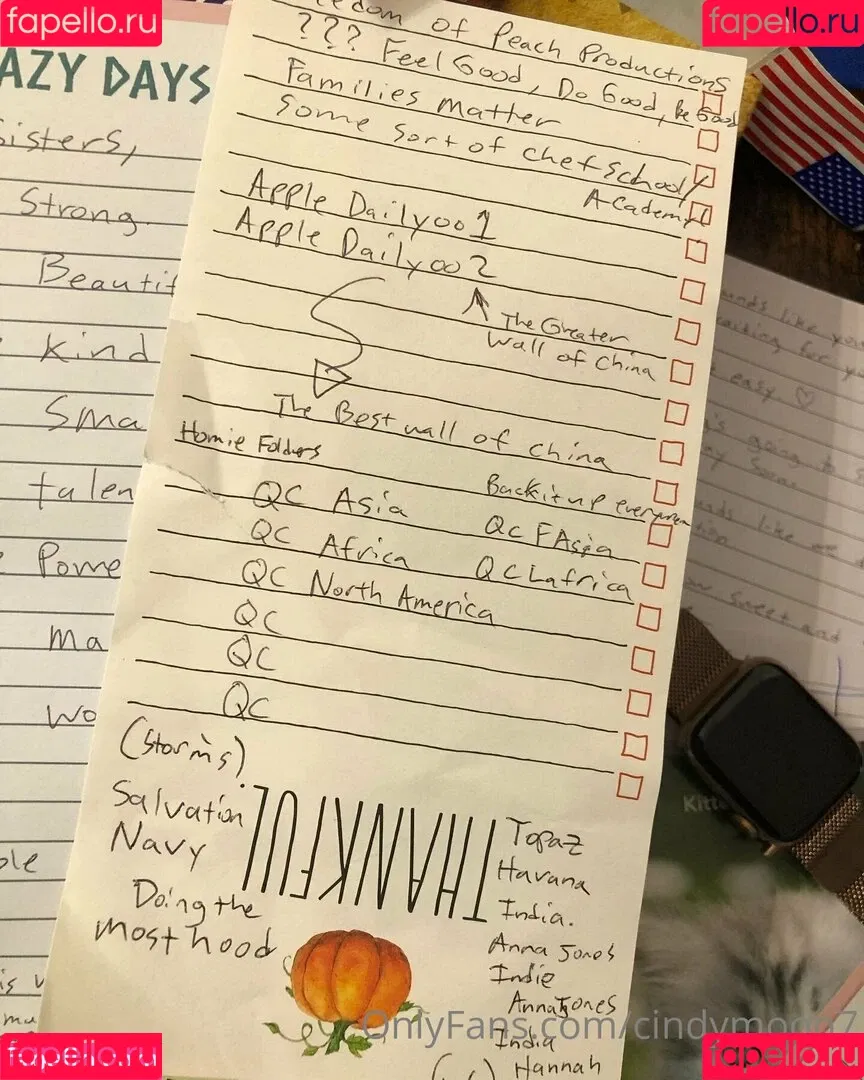 fapello.ru
fapello.ru
AZY DAYS
isters,
Strong
Beautif
kind
Sma
talen
Powe
ma
wo
ple
edom of Peach Productions
??? Feel Good, Do Good, be Good
Families matter
Some sort of chef school/
Academy
Apple Daily001
Apple Daily002
The Greater
Wall of China
The Best wall of china
Homie Folders
Back it up evergreen
QC Asia
QC FAsia
QC Africa
QC Lafrica
QC North America
QC
QC
QC
(Storms)
Salvation
Navy
Doing the
most hood
THANKFUL
Topaz
Havana
India.
Anna Jones
Indie
Anna Jones
India
Hannah
unds like you
waiting for yo
easy ♡
's going to
soon.
sweet and
Kitte
OnlyFans.com/cindymoon7
fapello.ru
fapello.ru